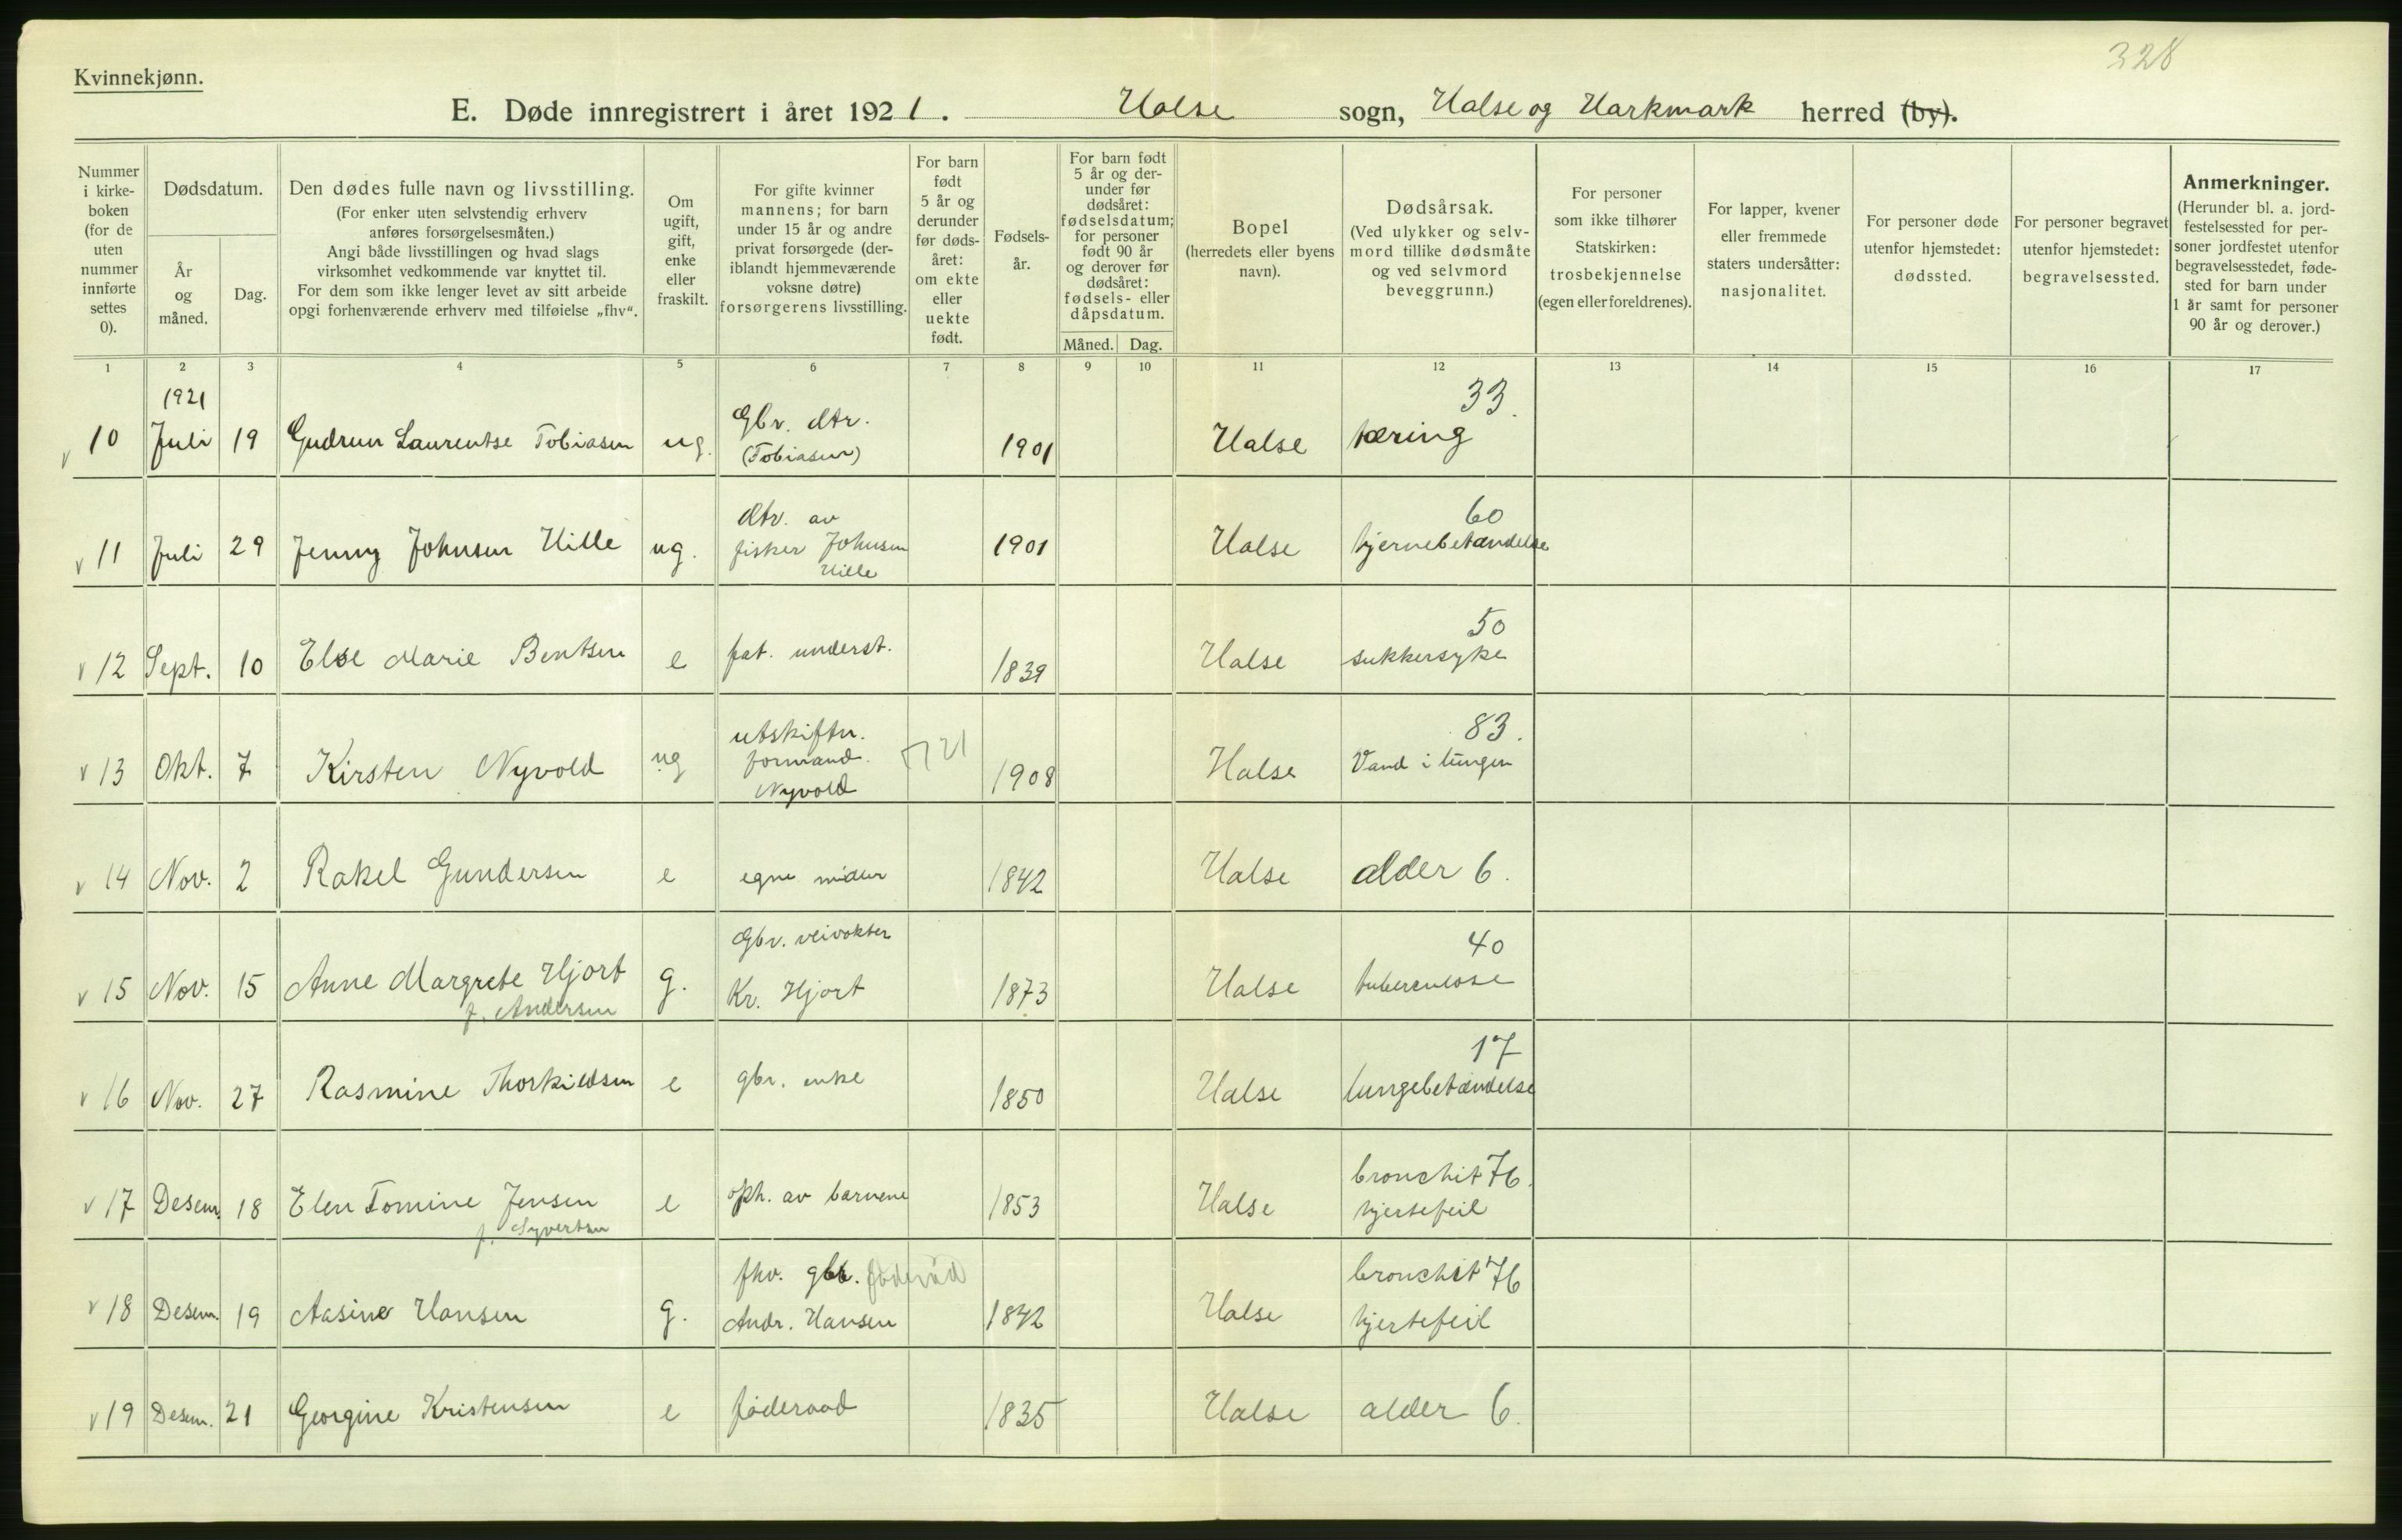 328
Kvinnekjønn.
E. Døde innregistrert i året 1921. Halse sogn, Halse og Harkmark herred (by).
Nummer i kirke- boken (for de uten nummer innførte settes 0).
Dødsdatum.
År og måned.
Dag.
Den dødes fulle navn og livsstilling.
(For enker uten selvstendig erhverv
anføres forsørgelsesmåten.)
Angi både livsstillingen og hvad slags
virksomhet vedkommende var knyttet til.
For dem som ikke lenger levet av sitt arbeide
opgi forhenværende erhverv med tilføielse „fhv“.
Om ugift, gift, enke eller fraskilt.
For gifte kvinner
mannens; for barn
under 15 år og andre
privat forsørgede (der-
iblandt hjemmeværende
voksne døtre)
forsørgerens livsstilling.
For barn født 5 år og derunder før døds- året: om ekte eller uekte født.
Fødsels- år.
For barn født 5 år og der- under før dødsåret: fødselsdatum; for personer født 90 år og derover før dødsåret: fødsels- eller dåpsdatum.
Måned. Dag.
Bopel
(herredets eller byens
navn).
Dødsårsak.
(Ved ulykker og selv-
mord tillike dødsmåte
og ved selvmord
beveggrunn.)
For personer
som ikke tilhører
Statskirken:
trosbekjennelse
(egen eller foreldrenes).
For lapper, kvener
eller fremmede
staters undersåtter:
nasjonalitet.
For personer døde
utenfor hjemstedet:
dødssted.
For personer begravet
utenfor hjemstedet:
begravelsessted.
Anmerkninger.
(Herunder bl. a. jord-
festelsessted for per-
soner jordfestet utenfor
begravelsesstedet, føde-
sted for barn under
1 år samt for personer
90 år og derover.)
1 2 3 4 5 6 7 8 9 10 11 12 13 14 15 16 17
1921
v 10 Juli 19 Gudrun Laurentse Tobiasen ug. Gbr. dtr. (Tobiasen) 1901 Halse tæring 33.
v 11 Juli 29 Jenny Johnsen Hille ug. dtr. av fisker Johnsen Hille 1901 Halse hjernebetændelse 60
v 12 Sept. 10 Else Marie Bentsen e fat. underst. 1839 Halse sukkersyke 50
v 13 Okt. 7 Kirsten Nyvold ug utskiftn. formand. Nyvold 1908 Halse Vand i lungen 83.
v 14 Nov. 2 Rakel Gundersen e egne midler 1842 Halse alder 6.
v 15 Nov. 15 Anne Margrete Hjort f. Andersen g. Gbr. veivokter Kr. Hjort 1873 Halse tuberculose 40
v 16 Nov. 27 Rasmine Thorkildsen e gbr. enke 1850 Halse lungebetændelse 17
v 17 Desem. 18 Elen Tomine Jensen f. Syvertsen e oph. av barnene 1853 Halse bronchit 76. hjertefeil
v 18 Desem. 19 Aasine Hansen g. fhv. gbr. føderåd Andr. Hansen 1842 Halse bronchit 76 hjertefeil
v 19 Desem. 21 Georgine Kristensen e føderaad 1835 Halse alder 6.